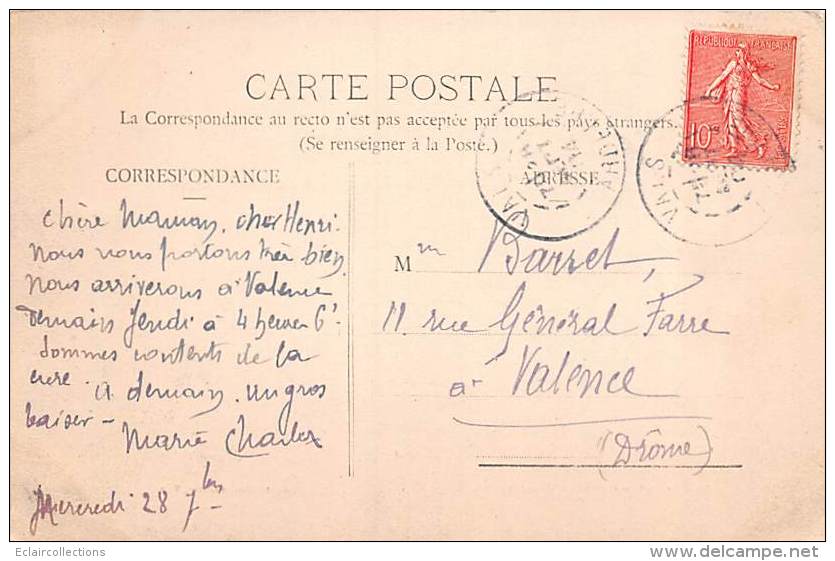 CARTE POSTALE
La Correspondance au recto n'est pas acceptée par tous les pays étrangers.
(Se renseigner à la Poste.)
CORRESPONDANCE
ADRESSE
REPUBLIQUE FRANÇAISE
10c
VALS
Chère Maman, cher Henri.
Nous nous portons très bien
nous arriverons à Valence
demain Jeudi à 4 heures 6'.
Sommes contents de la
cure. A demain, un gros
baiser –
Marie Charles
Mercredi 28 7bre
Mme Barret,
11 rue Général Farre
à Valence
(Drôme)
Eclaircollections
delcampe.net